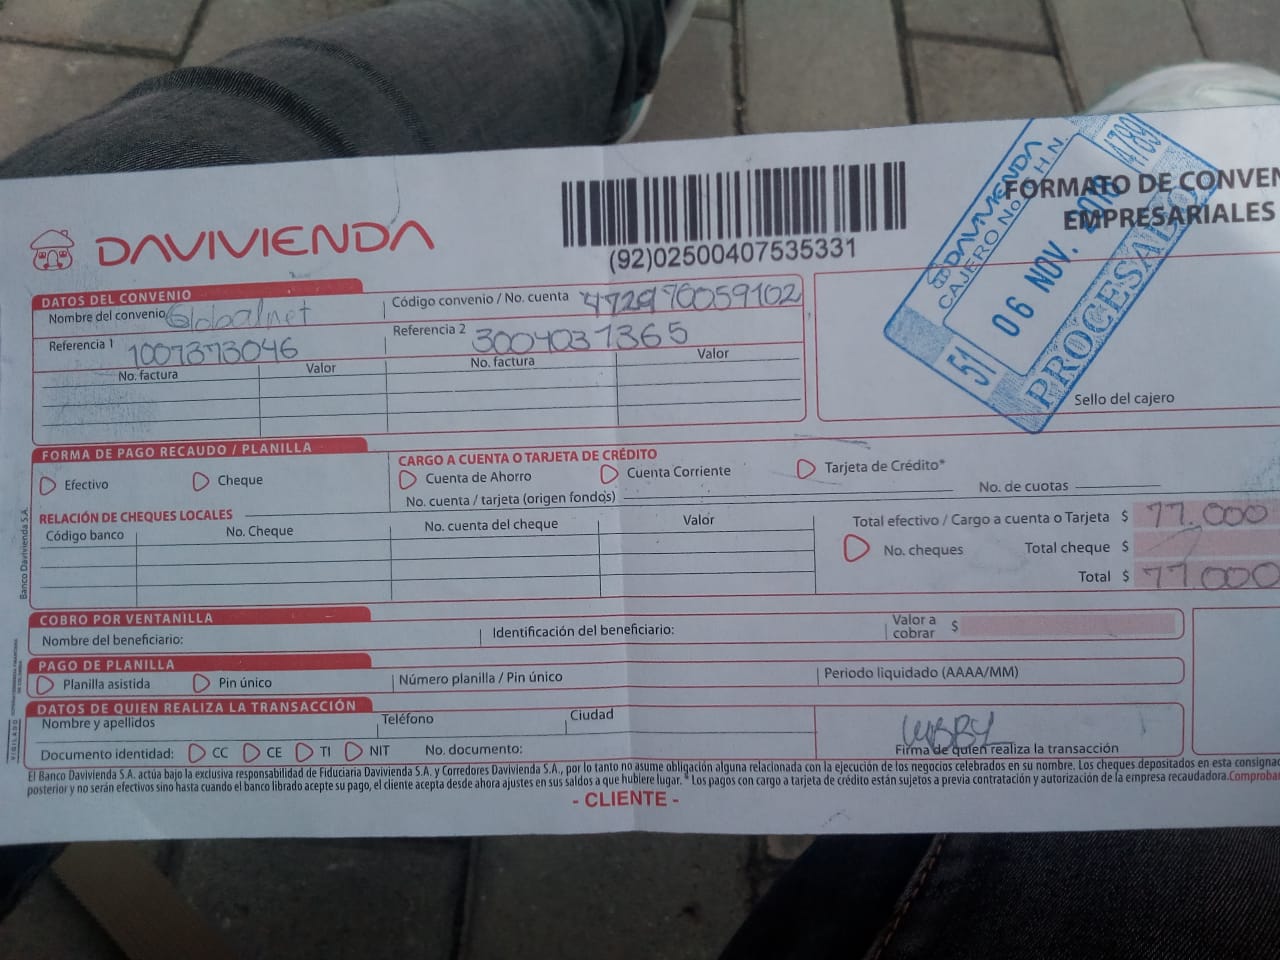 DAVIVIENDA
(92)02500407535331
FORMATO DE CONVEN
EMPRESARIALES
DAVIVIENDA
CAJERO No. H.N.
4789
06 NOV.
PROCESADO
51
Sello del cajero
DATOS DEL CONVENIO
Nombre del convenio Globalnet
Código convenio / No. cuenta 472970059102
Referencia 1 1007373046
Referencia 2 3004037365
No. factura Valor No. factura Valor
FORMA DE PAGO RECAUDO / PLANILLA
Efectivo Cheque
CARGO A CUENTA O TARJETA DE CRÉDITO
Cuenta de Ahorro Cuenta Corriente Tarjeta de Crédito*
No. cuenta / tarjeta (origen fondos) No. de cuotas
RELACIÓN DE CHEQUES LOCALES
Código banco No. Cheque No. cuenta del cheque Valor
Total efectivo / Cargo a cuenta o Tarjeta $ 77.000
No. cheques Total cheque $
Total $ 77.000
Banco Davivienda S.A.
COBRO POR VENTANILLA
Nombre del beneficiario: Identificación del beneficiario: Valor a
cobrar $
PAGO DE PLANILLA
Planilla asistida Pin único Número planilla / Pin único Periodo liquidado (AAAA/MM)
DATOS DE QUIEN REALIZA LA TRANSACCIÓN
Nombre y apellidos Teléfono Ciudad
Documento identidad: CC CE TI NIT No. documento:
Firma de quien realiza la transacción
VIGILADO
El Banco Davivienda S.A. actúa bajo la exclusiva responsabilidad de Fiduciaria Davivienda S.A. y Corredores Davivienda S.A., por lo tanto no asume obligación alguna relacionada con la ejecución de los negocios celebrados en su nombre. Los cheques depositados en esta consignac
posterior y no serán efectivos sino hasta cuando el banco librado acepte su pago, el cliente acepta desde ahora ajustes en sus saldos a que hubiere lugar. * Los pagos con cargo a tarjeta de crédito están sujetos a previa contratación y autorización de la empresa recaudadora. Comproba
- CLIENTE -